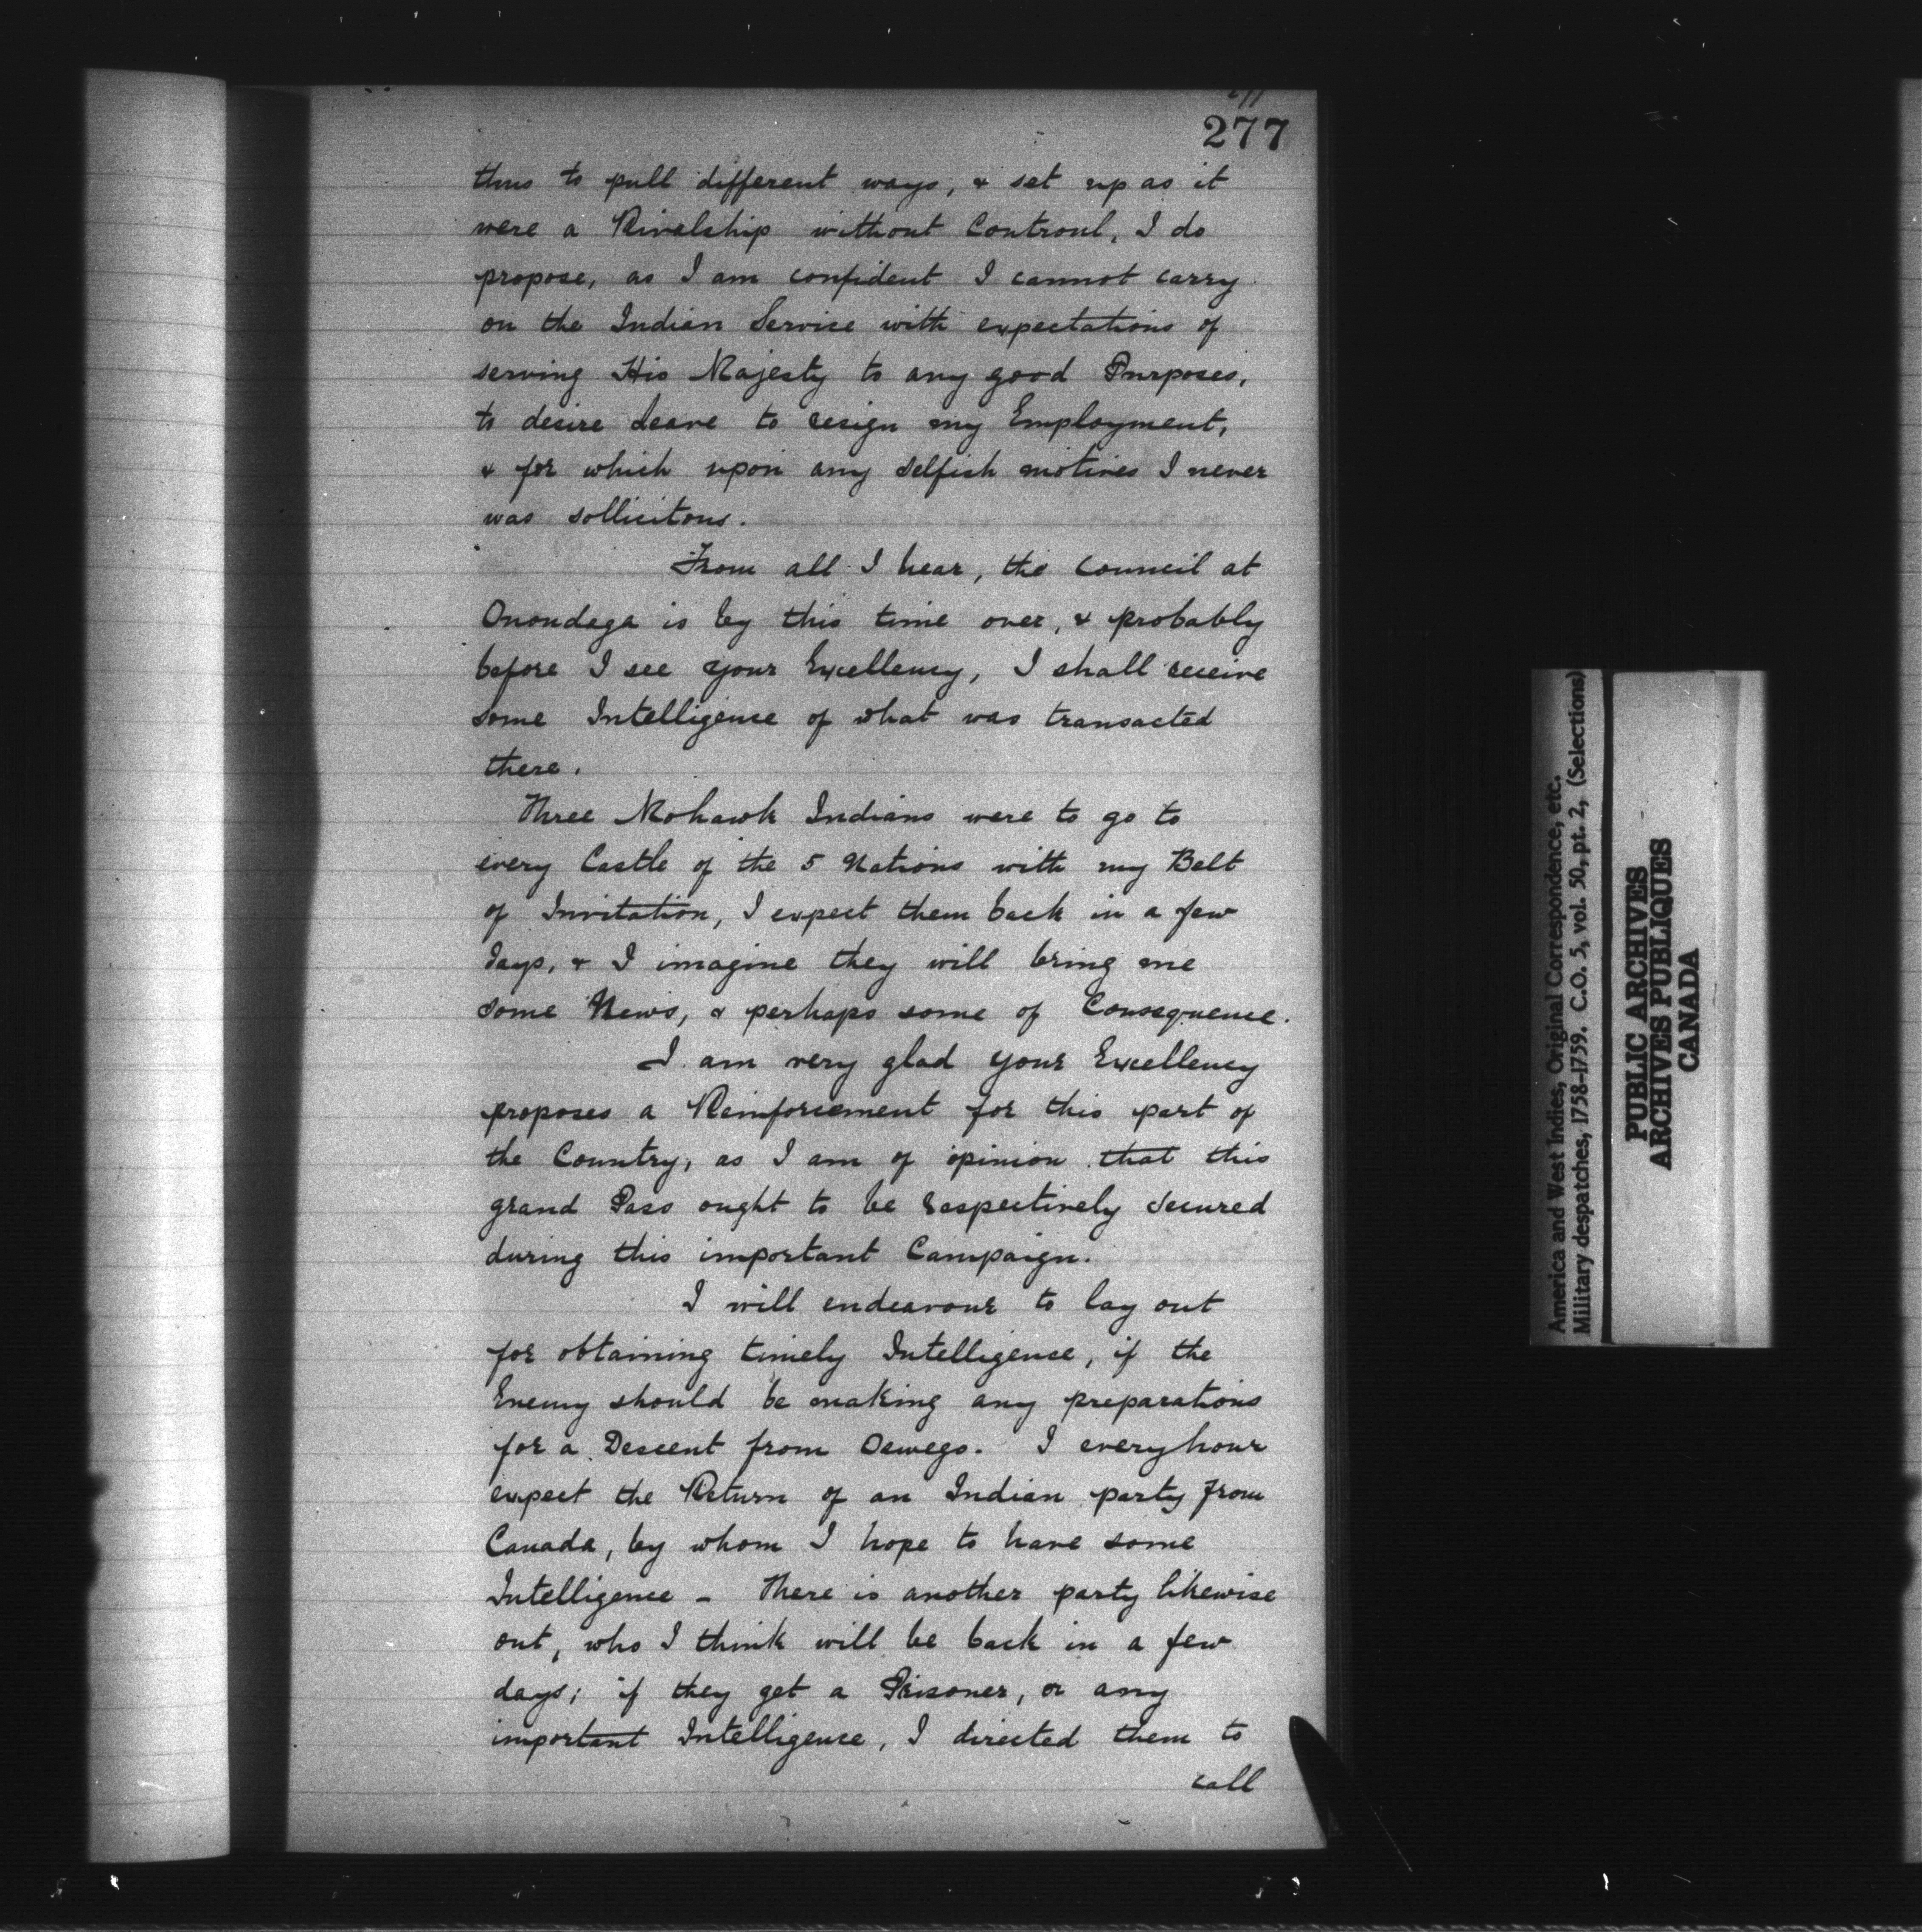 277
thus to pull different ways, & set up as it
were a Rivalship without Controul, I do
propose, as I am confident I cannot carry
on the Indian Service with expectations of
serving His Majesty to any good Purposes,
to desire Leave to resign my Employment,
& for which upon any selfish motives I never
was sollicitous.
From all I hear, the Council at
Onondaga is by this time over, & probably
before I see your Excellency, I shall receive
some Intelligence of what was transacted
there.
Three Mohawk Indians were to go to
every Castle of the 5 Nations with my Belt
of Invitation, I expect them back in a few
days, & I imagine they will bring me
some News, & perhaps some of Consequence.
I am very glad your Excellency
proposes a Reinforcement for this part of
the Country, as I am of opinion that this
grand Pass ought to be respectively secured
during this important Campaign.
I will endeavour to lay out
for obtaining timely Intelligence, if the
Enemy should be making any preparations
for a Descent from Oswego. I every hour
expect the Return of an Indian party from
Canada, by whom I hope to have some
Intelligence - There is another party likewise
out, who I think will be back in a few
days; if they get a Prisoner, or any
important Intelligence, I directed them to
call
America and West Indies, Original Correspondence, etc.
Military despatches, 1758-1759. C.O. 5, vol. 50, pt. 2, (Selections)
PUBLIC ARCHIVES
ARCHIVES PUBLIQUES
CANADA